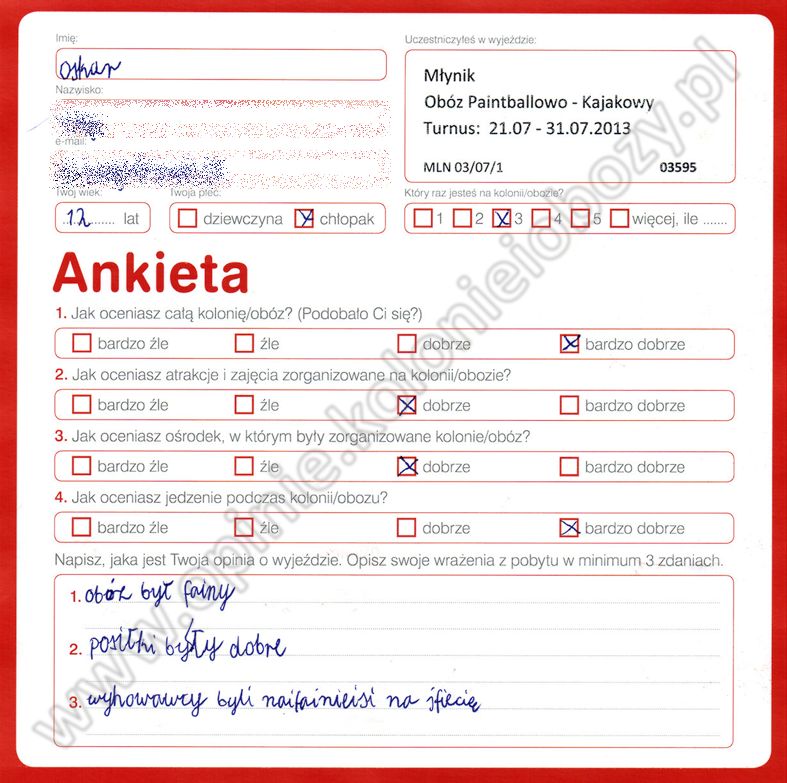 Imię:
Uczestniczyłeś w wyjeździe:
oskar
Młynik
Obóz Paintballowo - Kajakowy
Turnus: 21.07 - 31.07.2013
MLN 03/07/1 03595
Nazwisko:
e-mail:
Twój wiek: Twoja płeć: Który raz jesteś na kolonii/obozie?
12 lat dziewczyna chłopak 1 2 3 4 5 więcej, ile .......
Ankieta
1. Jak oceniasz całą kolonię/obóz? (Podobało Ci się?)
bardzo źle źle dobrze bardzo dobrze
2. Jak oceniasz atrakcje i zajęcia zorganizowane na kolonii/obozie?
bardzo źle źle dobrze bardzo dobrze
3. Jak oceniasz ośrodek, w którym były zorganizowane kolonie/obóz?
bardzo źle źle dobrze bardzo dobrze
4. Jak oceniasz jedzenie podczas kolonii/obozu?
bardzo źle źle dobrze bardzo dobrze
Napisz, jaka jest Twoja opinia o wyjeździe. Opisz swoje wrażenia z pobytu w minimum 3 zdaniach.
1. obóz był fajny
2. posiłki były dobre
3. wyhowawcy byli najfajniejsi na
www.opinie.kolonieiobozy.pl